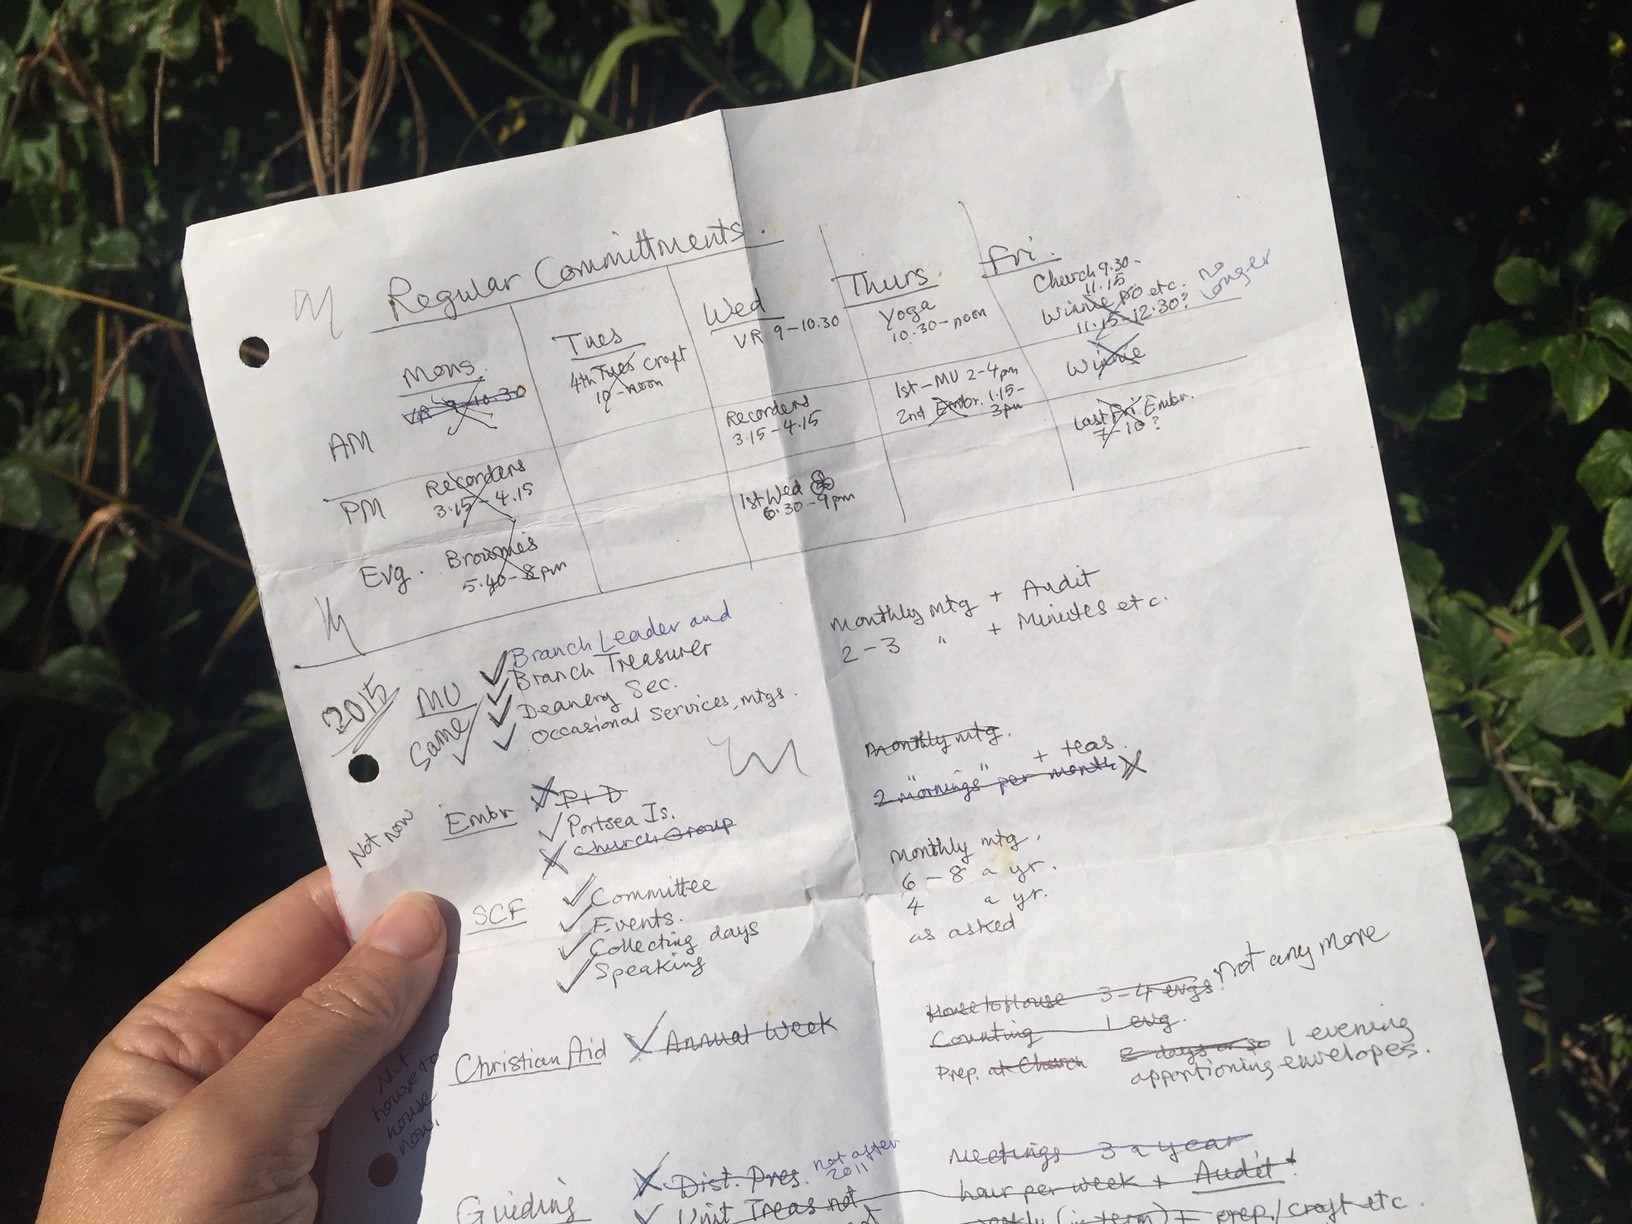 Regular Committments.
Mons. Tues Wed Thurs. Fri.
AM
VR 9-10.30
4th Tues craft
10-noon
VR 9-10.30
Yoga
10.30-noon
Church 9.30-
11.15
Winnie PO etc. no longer
11.15-12.30?
PM
Recorders
3.15-4.15
Recorders
3.15-4.15
1st-MU 2-4pm
2nd Embr. 1.15-
3pm
Winnie
Evg.
Brownies
5.40-8pm
1st Wed
6.30-9pm
Last Fri. Embr.
7-10?
2015
MU
Same
Branch Leader and
Branch Treasurer
Deanery Sec.
Occasional Services, mtgs.
monthly mtg + Audit
2-3 " + Minutes etc.
Not now
Embr
P+D
Portsea Is.
Church Group
monthly mtg.
" + teas.
2 "mornings" per month
SCF
Committee
Events.
Collecting days
Speaking
monthly mtg.
6-8 a yr.
4 a yr.
as asked
Christian Aid
Annual Week
House to House 3-4 evgs. not any more
Counting 1 evg.
Prep. at Church 2 days or so 1 evening
apportioning envelopes.
Not
house to
house
now.
Guiding
Dist. Pres. not after
2011
Unit Treas not
Meetings 3 a year
hour per week + Audit
weekly (in term) + prep/craft etc.